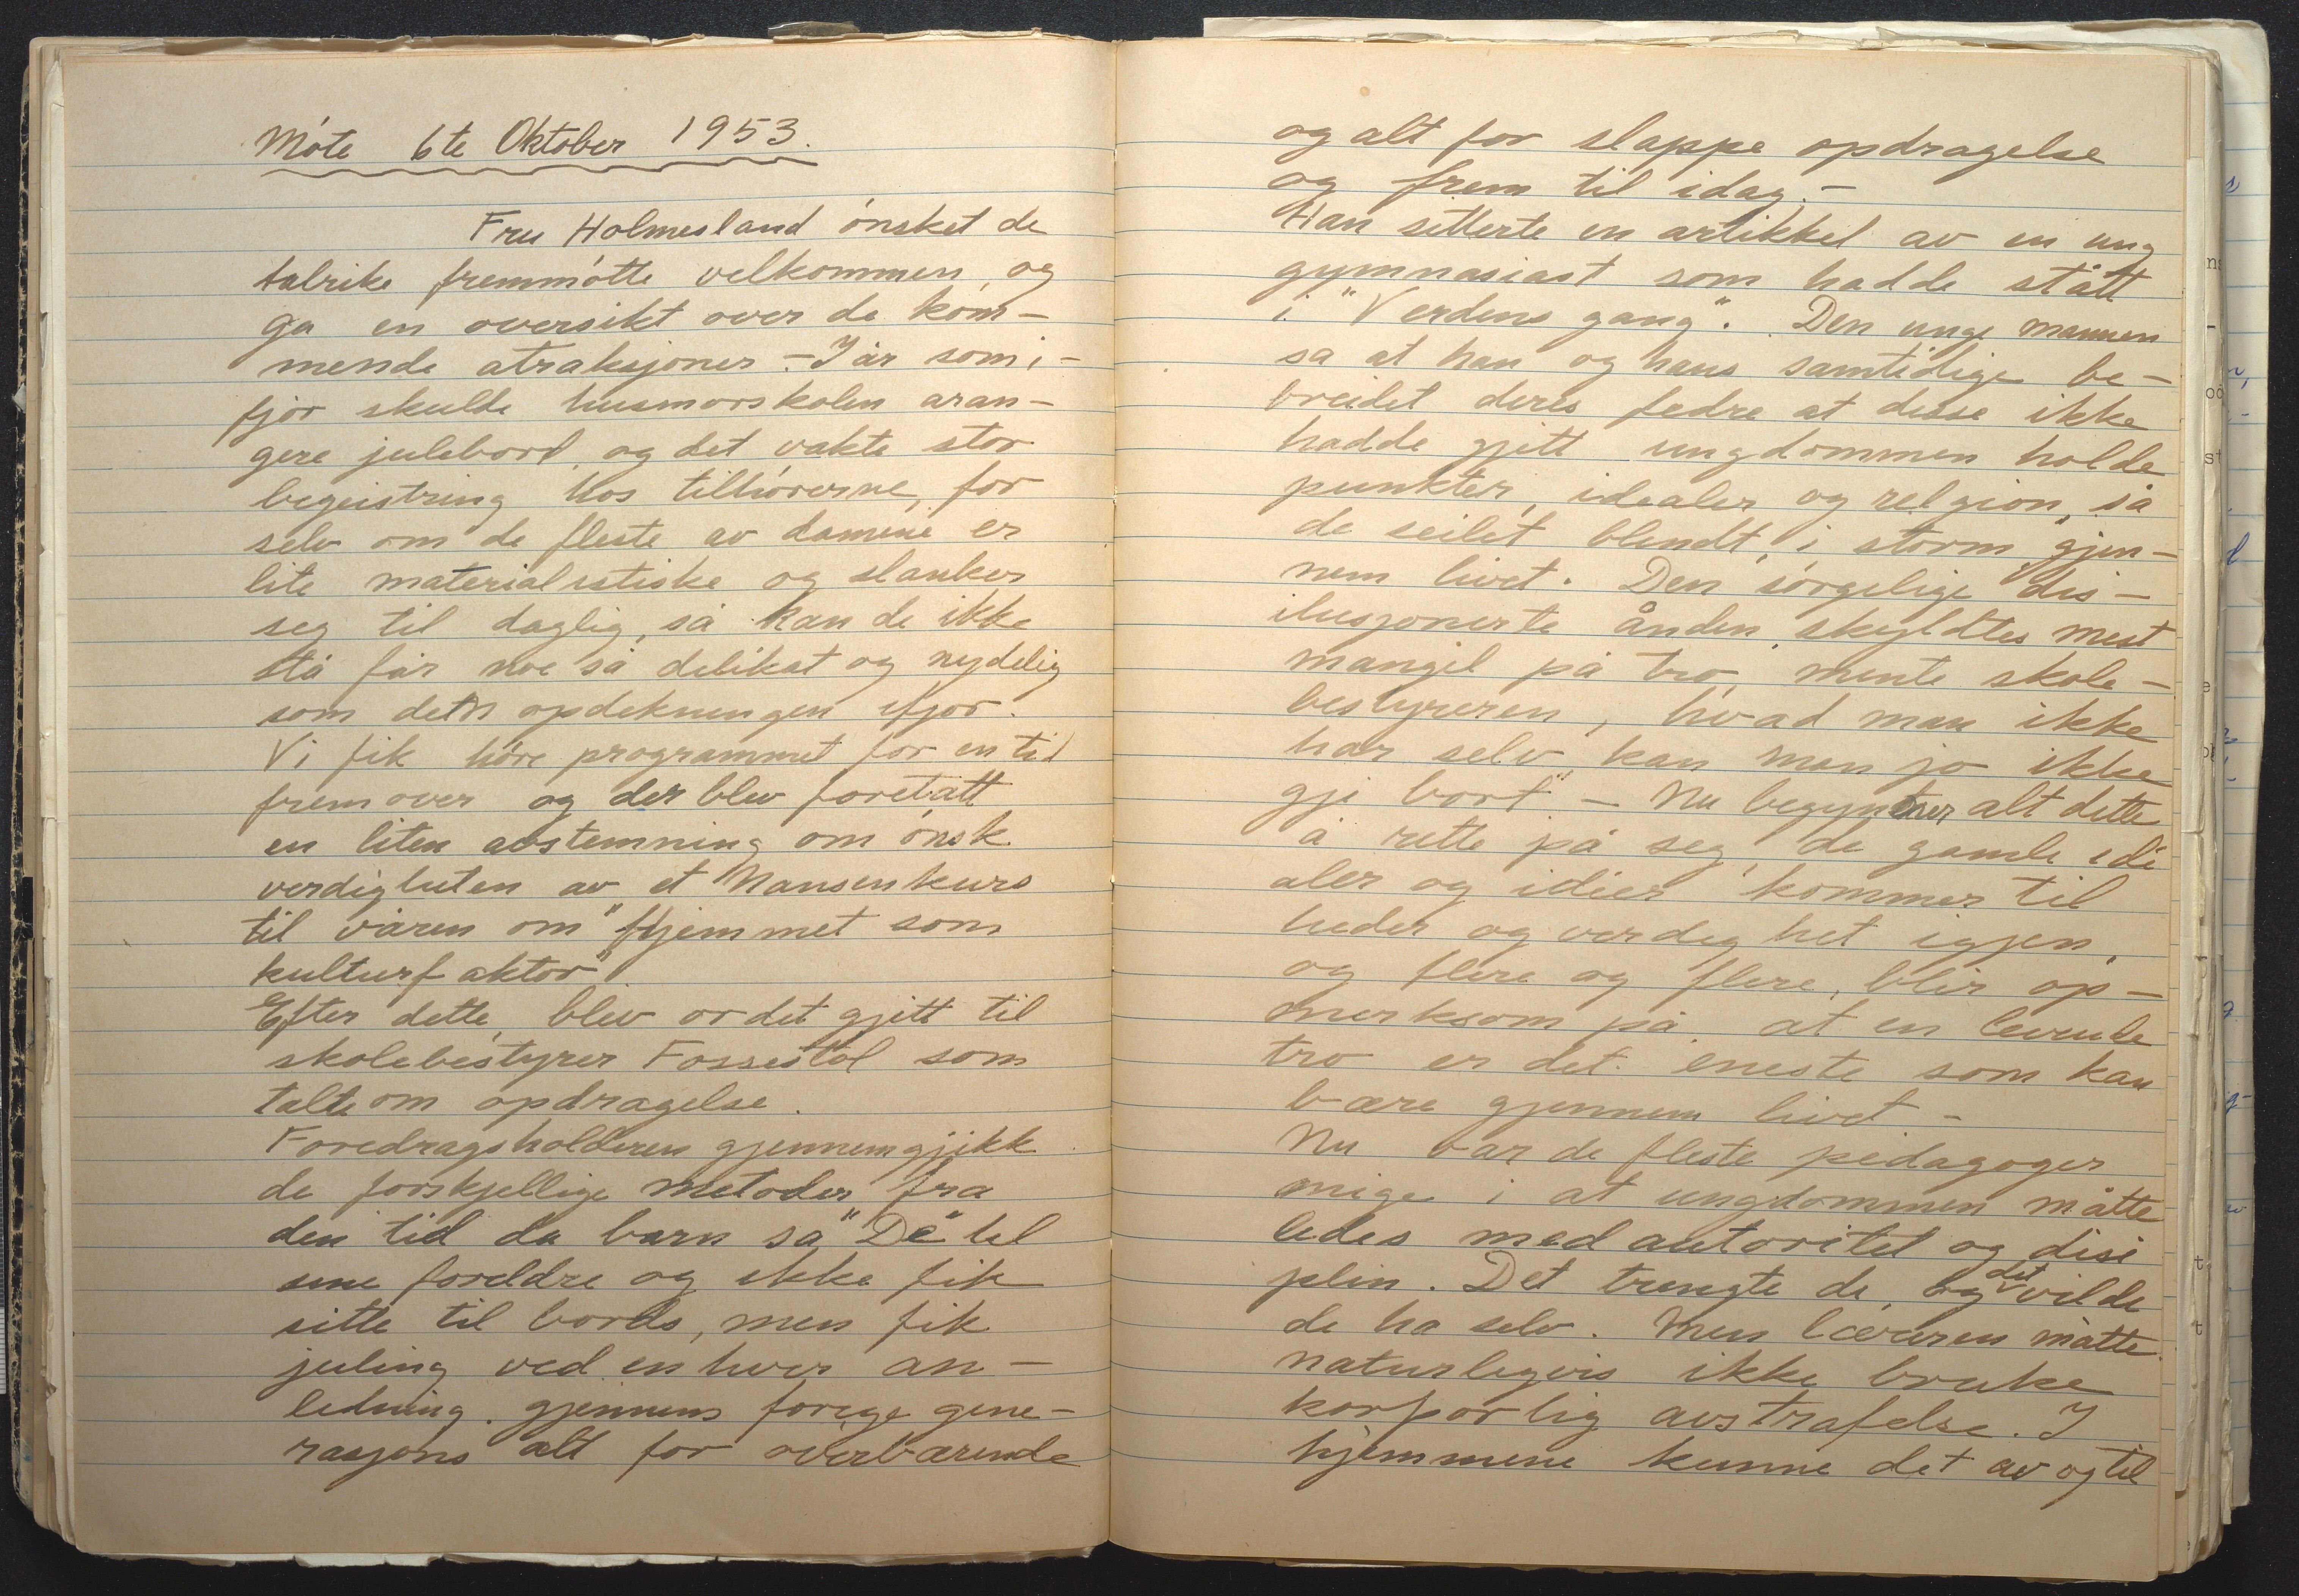 Møte 6te Oktober 1953.
Fru Holmesland ønsket de
talrike fremmøtte velkommen, og
ga en oversikt over de kom-
mende atraksjoner. - I år som i-
fjor skulde husmorskolen aran-
gere julebord, og det vakte stor
begeistring hos tilhørerne, for
selv om de fleste av damene er
lite materialistiske og slanker
seg til daglig, så kan de ikke
stå får noe så delikat og nydelig
som den opdekningen ifjor.
Vi fik høre programmet for en tid
fremover og der blev foretatt
en liten avstemning om ønsk
verdigheten av et Nansenkurs
til våren om "Hjemmet som
kulturfaktor"
Efter dette, blev ordet gjitt til
skolebestyrer Fossestøl som
talte om opdragelse.
Foredragsholderen gjennemgjikk
de forskjellige metoder fra
den tid da barn sa "De" til
sine foreldre og ikke fik
sitte til bords, men fik
juling ved en hver an-
ledning. gjennem forige gene-
rasjons alt for overbærende
og alt for slappe opdragelse
og frem til idag. -
Han sitterte en artikkel av en ung
gymnasiast som hadde stått
i "Verdens gang". Den unge mannen
sa at han og hans samtidige be-
breidet deres fedre at disse ikke
hadde gjitt ungdommen holde
punkter, idealer og relgion, så
de seilet blendt, i storm gjen-
nem livet. Den sørgelige dis-
ilusjonerte ånden skyldtes mest
mangel på tro, mente skole-
bestyreren, "hvad man ikke
har selv, kan man jo ikke
gji bort" - Nu begynner alt dette
å rette på seg, de gamle ide
aler og idéer kommer til
heder og verdighet igjen,
og flere og flere, blir op-
merksom på at en levende
tro er det eneste som kan
bære gjennem livet -
Nu var de fleste pedagoger
enige i at ungdommen måtte
ledes med autoritet og disi
plin. Det trengte de, og det vilde
de ha selv. Men læreren måtte
naturligvis ikke bruke
korporlig avstrafelse. I
hjemmene kunne det av og til